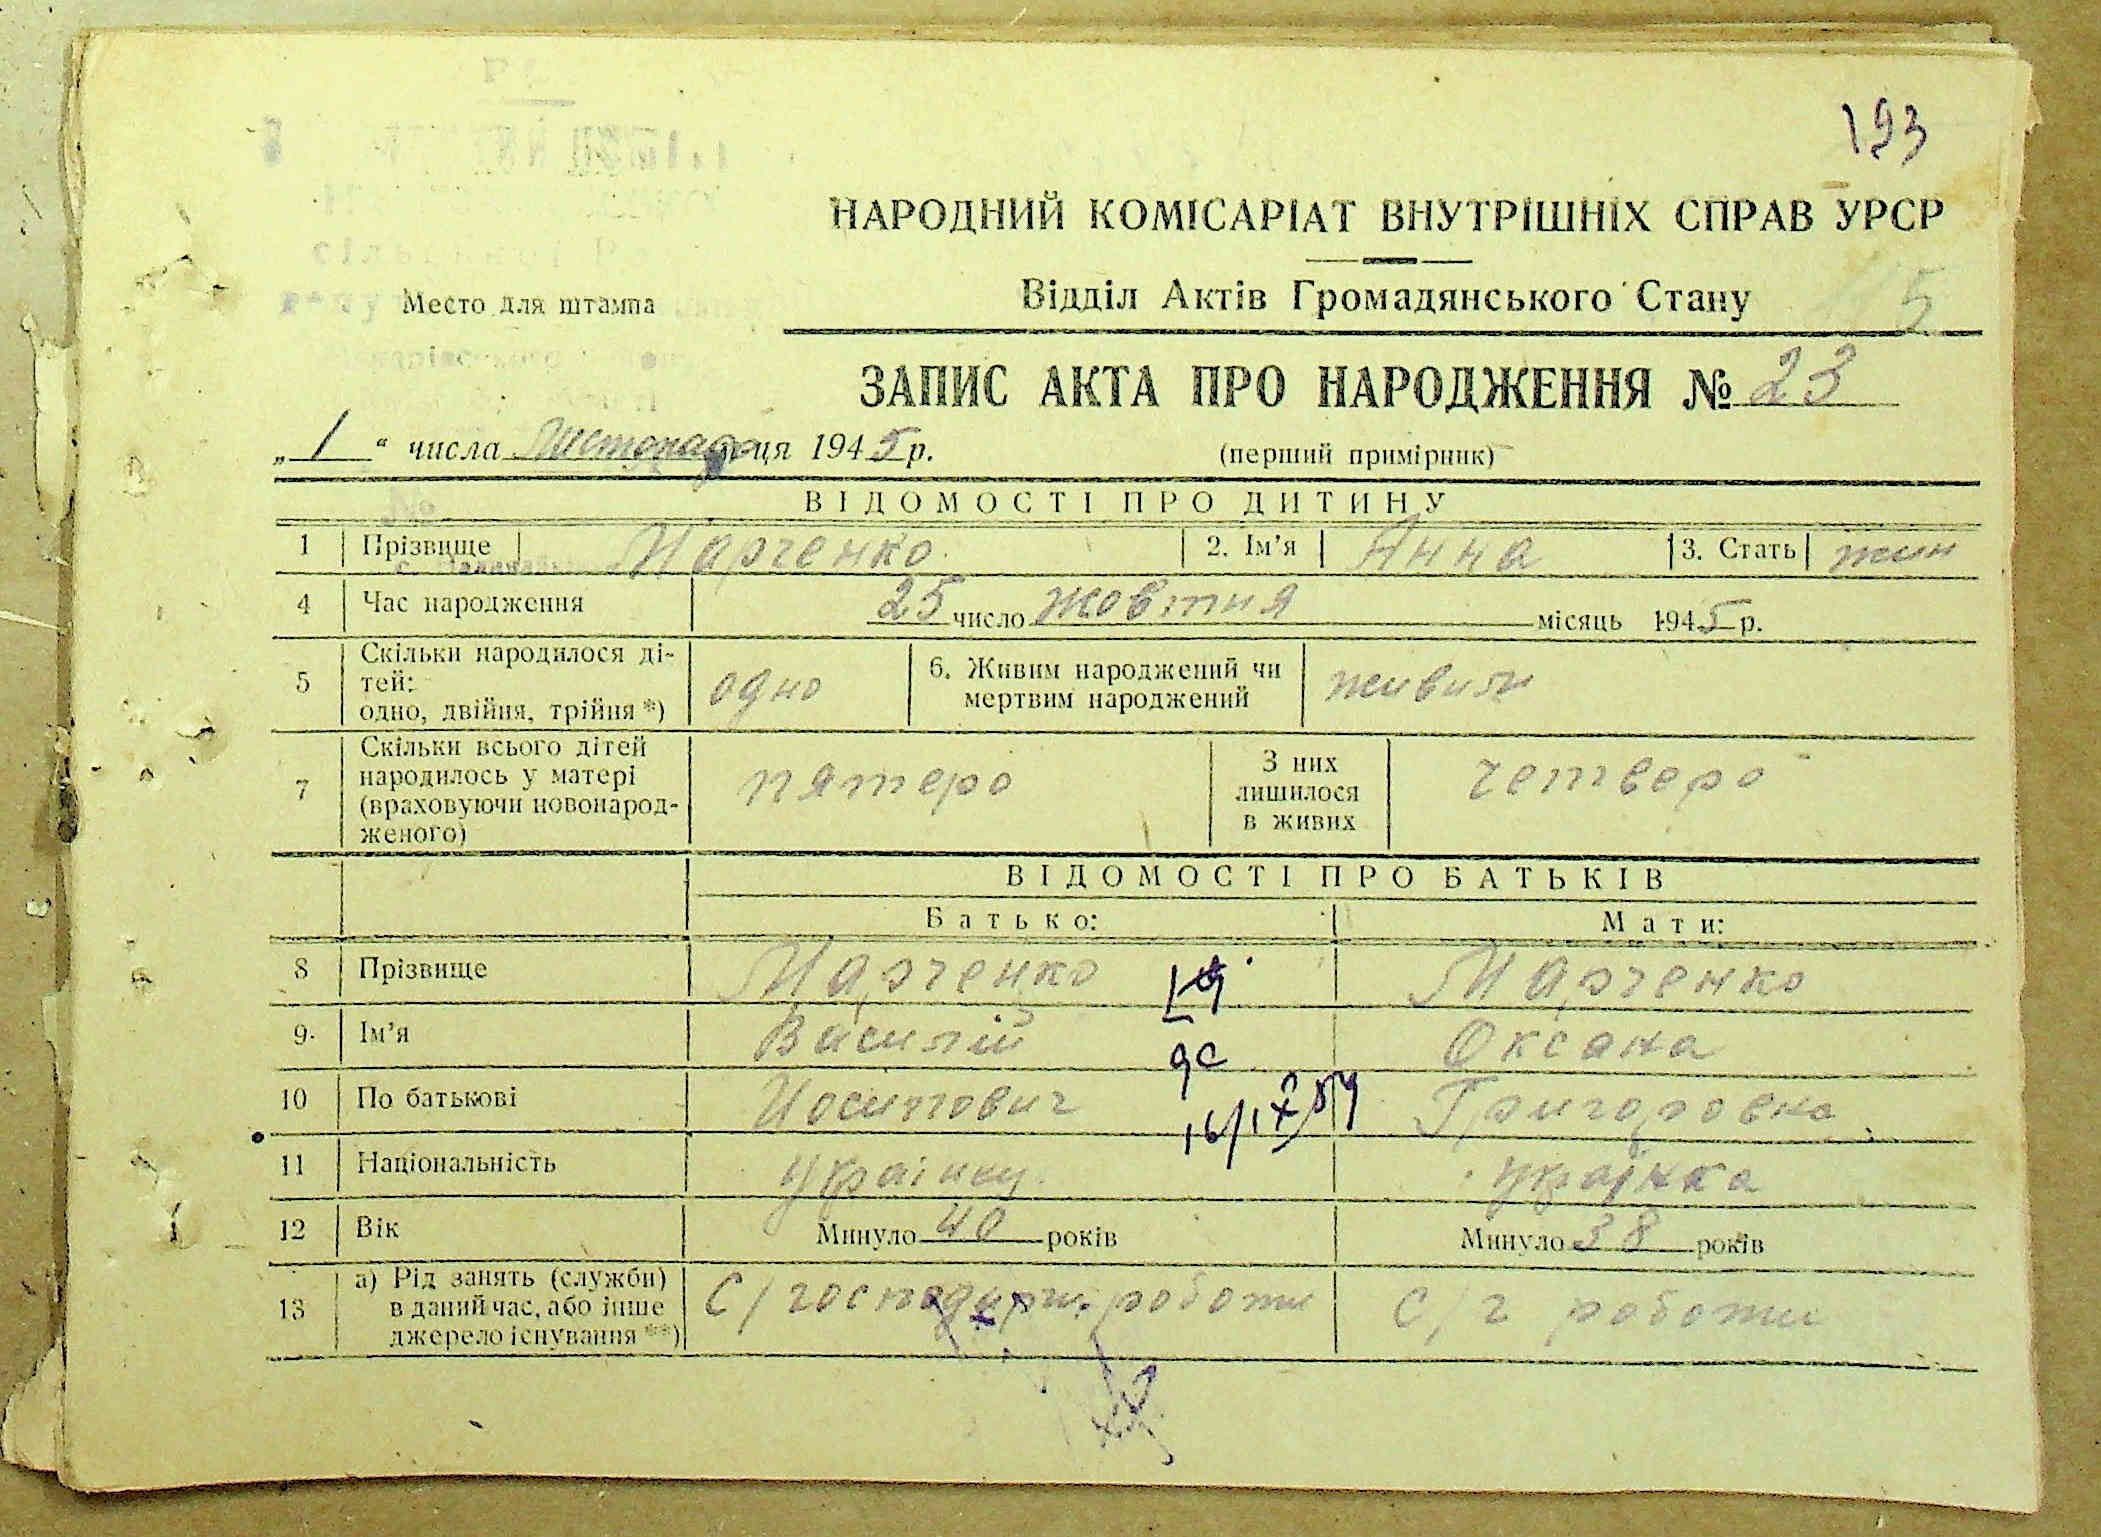 193
НАРОДНИЙ КОМІСАРІАТ ВНУТРІШНІХ СПРАВ УРСР
Відділ Актів Громадянського Стану
Место для штампа
5
ЗАПИС АКТА ПРО НАРОДЖЕННЯ № 23
„1“ числа Листопада ця 1945 р. (перший примірник)
ВІДОМОСТІ ПРО ДИТИНУ
1 Прізвище Марченко 2. Ім'я Анна 3. Стать жин
4 Час народження 25 число жовтня місяць 1945 р.
5 Скільки народилося ді-
тей:
одно, двійня, трійня *) одно 6. Живим народжений чи
мертвим народжений живим
7 Скільки всього дітей
народилось у матері
(враховуючи новонарод-
женого) пятеро З них
лишилося
в живих четверо
ВІДОМОСТІ ПРО БАТЬКІВ
Батько: Мати:
8 Прізвище Марченко Марченко
9. Ім'я Василій Оксана
10 По батькові Иосипович Григоровна
11 Національність українец українка
12 Вік Минуло 40 років Минуло 38 років
13 а) Рід занять (службн)
в даний час, або інше
джерело існування **) С/господарч. роботи С/г роботи